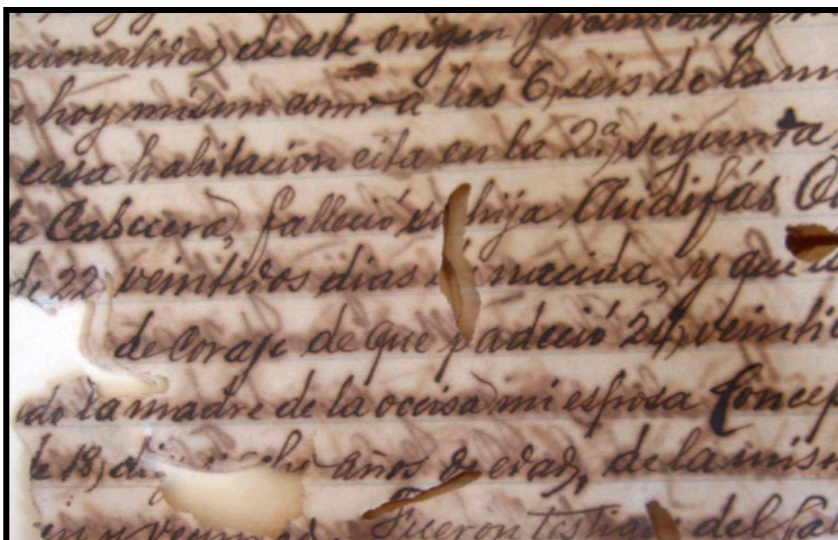 acionalidad, de este origen y
hoy mismo como a las 6, seis de la m
casa habitacion cita en la 2ª, segunda,
la Cabecera, falleció su hija
de 22, veintidos dias de nacida, y que
de coraje de que padeció 24, veinti
ido la madre de la occisa, mi esposa Concep
de 18, años de edad, de la mis
en y Fueron testigos del fa